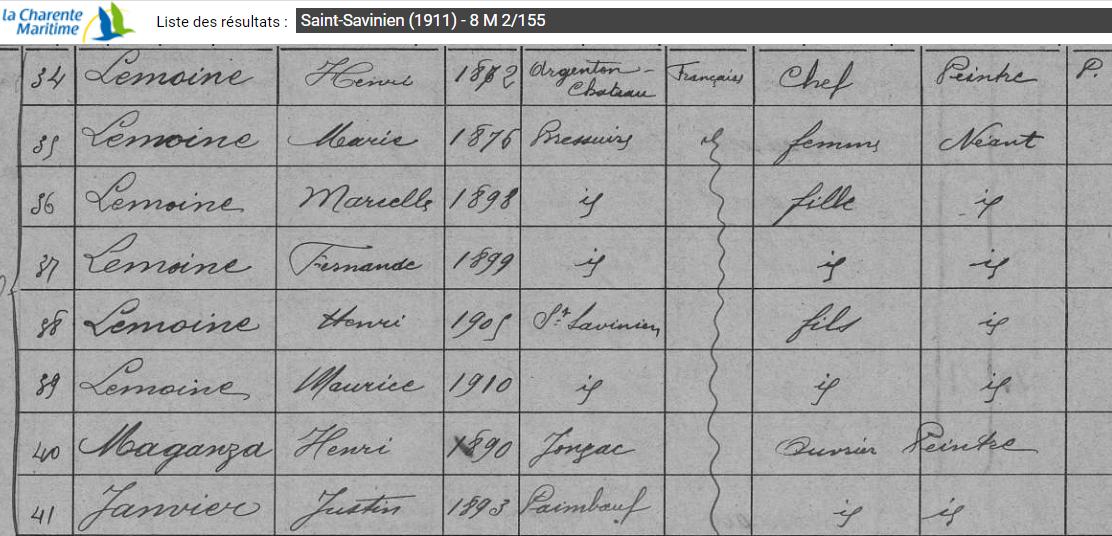 la Charente
Maritime
Liste des résultats : Saint-Savinien (1911) - 8 M 2/155
34 Lemoine Henri 1872 Argenton-Chateau Français Chef Peintre P.
35 Lemoine Marie 1876 Bressuire id femme Néant
36 Lemoine Marcelle 1898 id fille id
37 Lemoine Fernande 1899 id id id
38 Lemoine Henri 1905 St Savinien fils id
39 Lemoine Maurice 1910 id id id
40 Maganza Henri 1890 Jonzac Ouvrier Peintre
41 Janvier Justin 1893 Paimbœuf id id